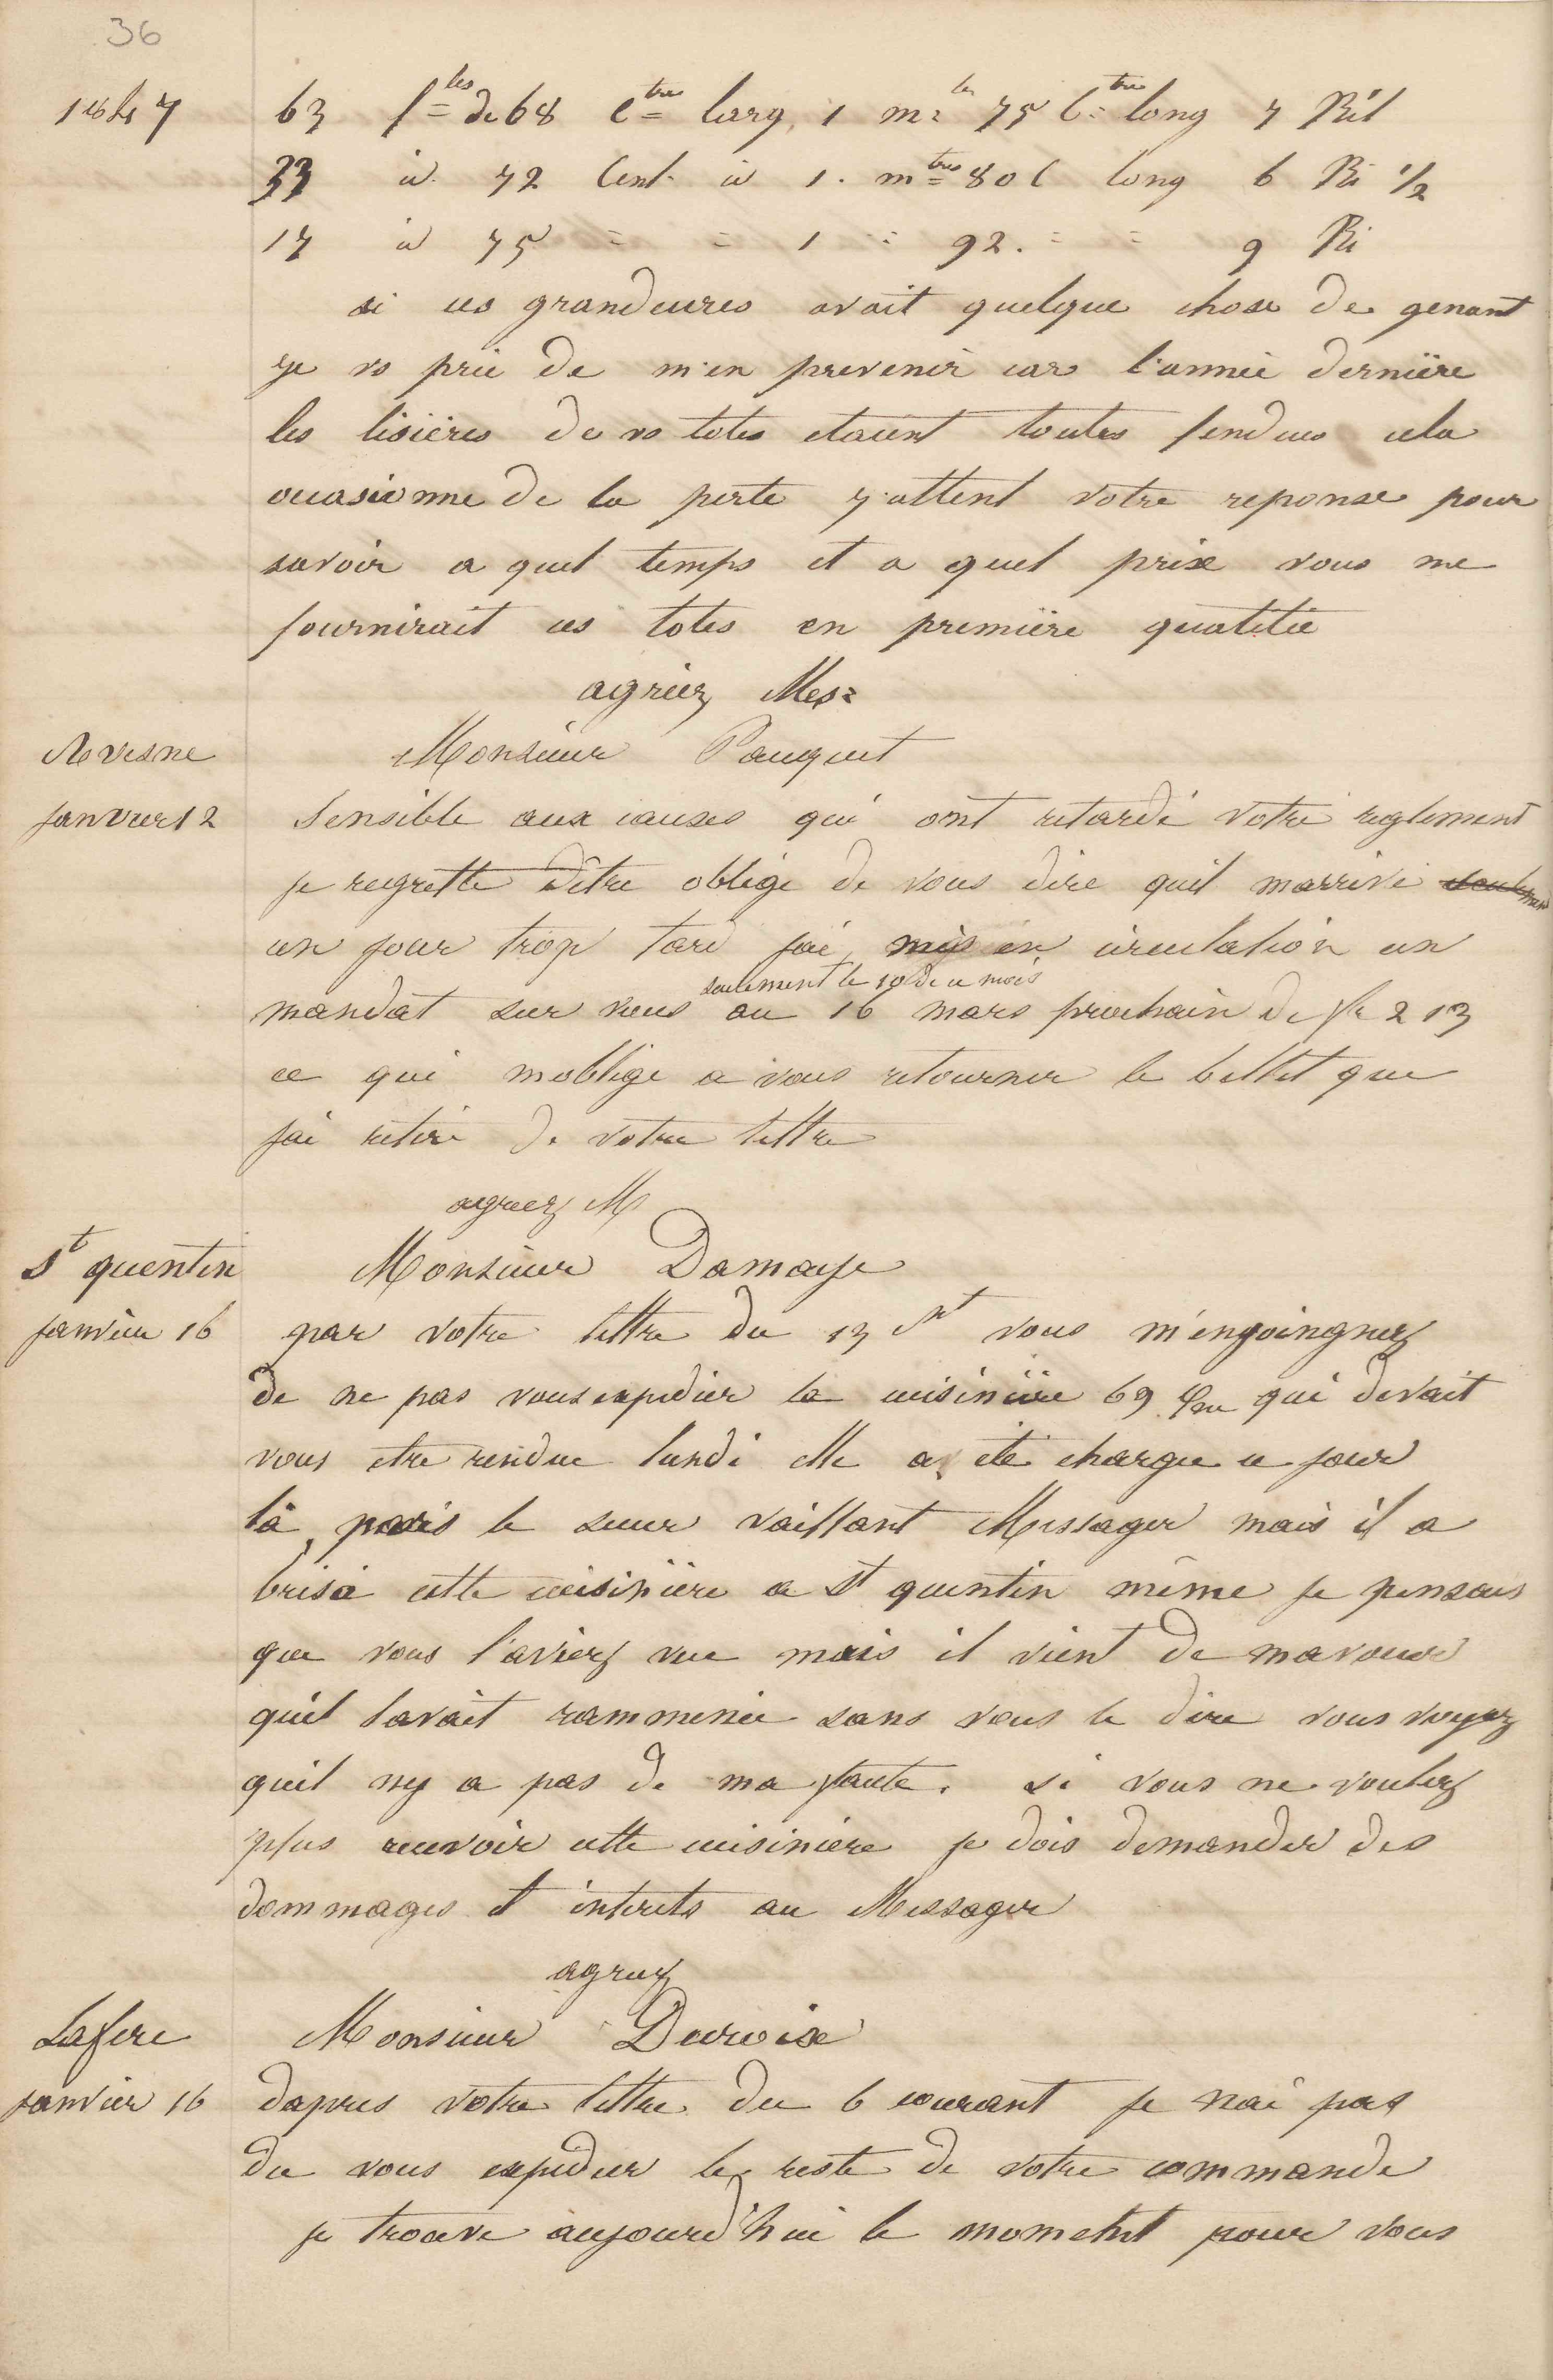 36
1847
63 f^les de 68 c^tres larg, 1 m^tre 75 c^tres long 7 Kil
33 id. 72 Cent. id 1. m^tres 80 C long 6 Ki 1/2
17 id 75 = = 1 = 92. = = 9 Ki
si ces grandeures avait quelque chose de genant
je vs prie de m'en prevenir car l'année dernière
les lisières de vs toles etaient toutes fendues cela
ocasionne de la perte j'attent votre reponse pour
savoir a quel temps et a quel prix vous me
fournirait ces toles en première quatitée
agréez Mes=
Avesne
Monsieur Pauquet
Janvier 12
Sensible aux causes qui ont retardé votre reglement
je regrette d'être obligé de vous dire quil marrive seulement
un jour trop tard jai mis en circulation un
seulement le 10 de ce mois
mandat sur vous au 16 mars prochain de fr 213
ce qui moblige a vous retourner le billet que
jai retiré de votre lettre
agreez M
St quentin
Monsieur Damaye
janvier 16
par votre lettre du 13 ct vous m'enjoingnez
de ne pas vous expedier la cuisinière 69 qui devait
vous etre rendue lundi elle a été chargée ce jour
là par le sieur vaillant Messager mais il a
brisé cette cuisinière a St quentin même je pensais
que vous l'aviez vue mais il vient de mavouer
quil lavait rammenée sans vous le dire vous voyez
quil ny a pas de ma faute. si vous ne voulez
plus recevoir cette cuisiniere je dois demander des
dommages et interets au Messager
agreez
Lafere
Monsieur Duroix
janvier 16
dapres votre lettre du 6 courant je nai pas
du vous expedier le reste de votre commande
je trouve aujourd'hui le moment pour vous